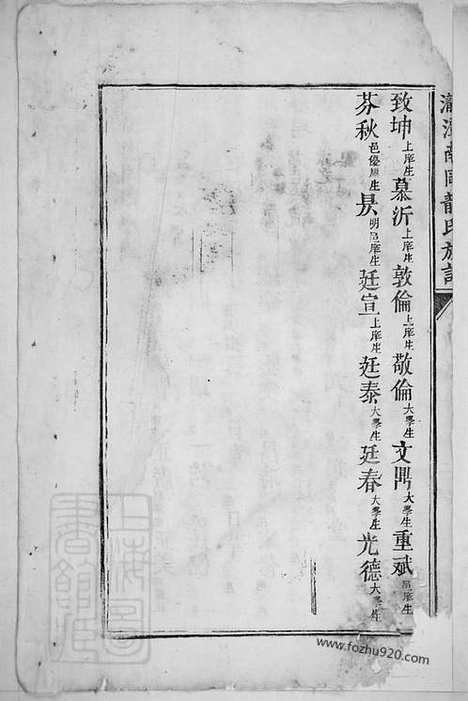 南岡龍氏族譜
致坤上庠生慕沂上庠生敦倫上庠生敬倫大學生文鼎大學生重斌邑庠生
芬秋邑優廩生昃明邑庠生廷宣上庠生廷泰大學生廷春大學生光德大學生
上海圖書館藏
www.fozhu920.com